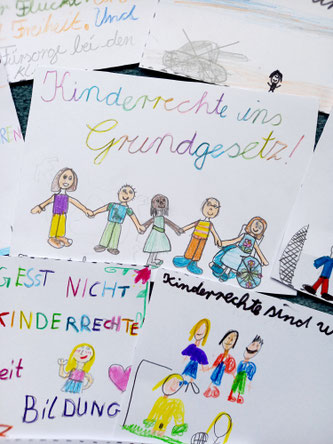 Flucht.
Freiheit. Und
Fürsorge bei den
Kinderrechte ins
Grundgesetz!
GESST NICHT
KINDERRECHTE
eit
BILDUNG
Kinderrechte sind w